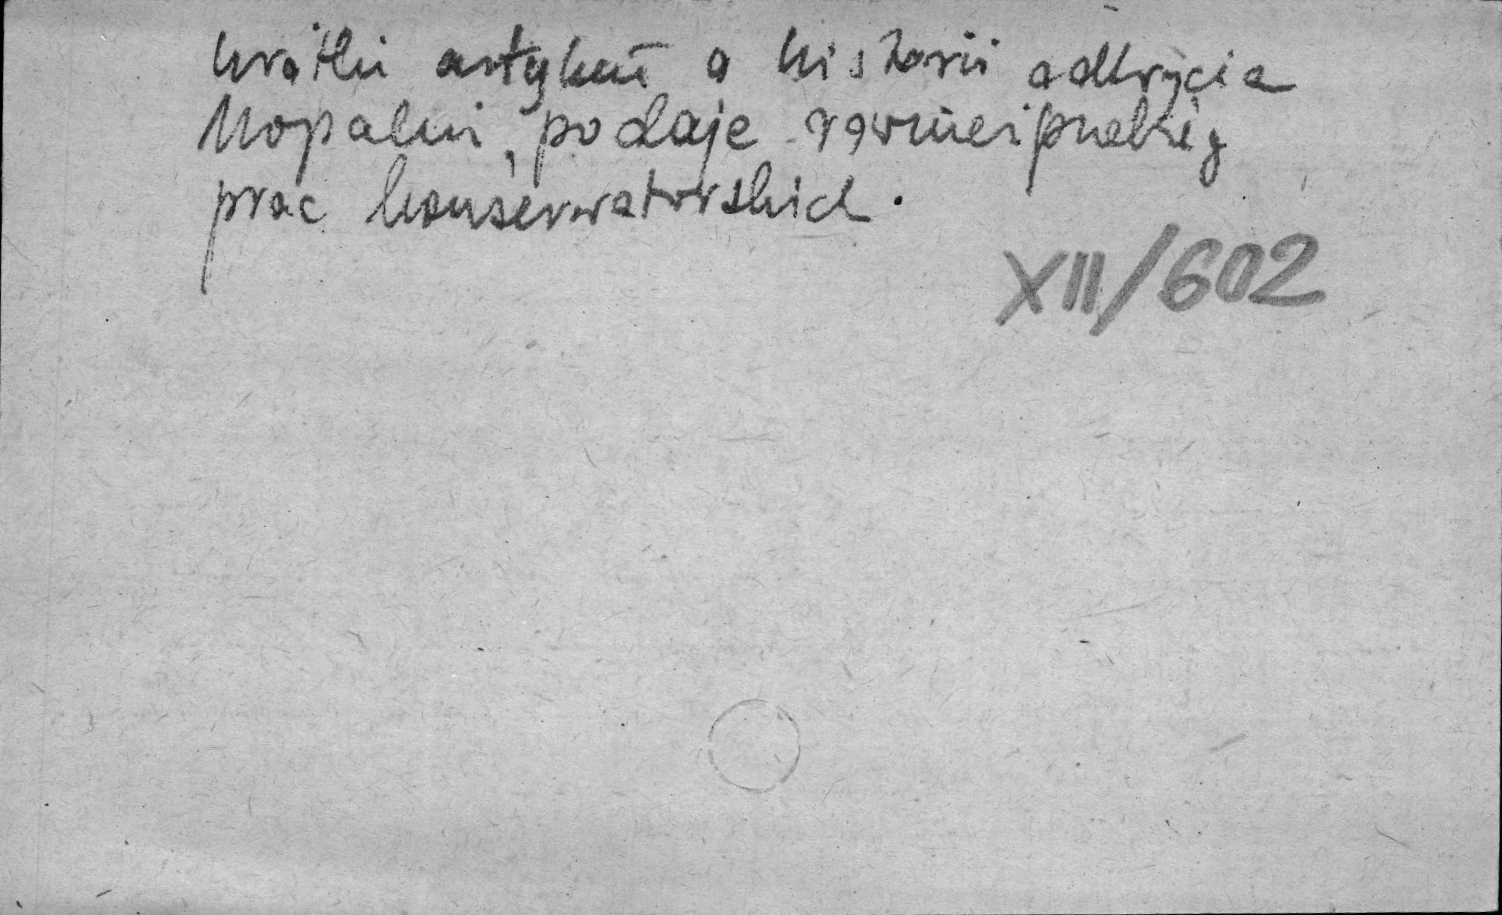 krótki artykuł o historii odkrycia
kopalni, podaje również przebieg
prac konserwatorskich.
XII/602